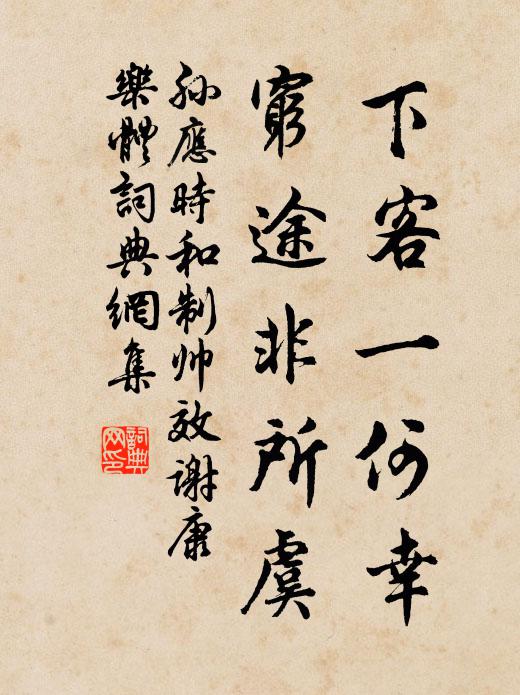 下客一何幸
窮途非所虞
孙應時和制帅效谢康
樂體詞典網集
詞典
网印